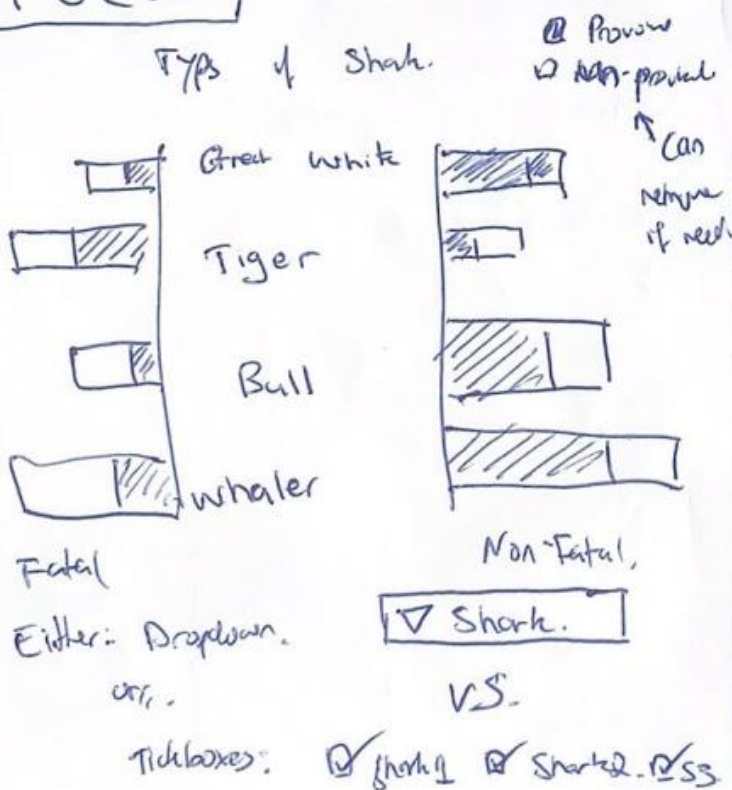 Types of Shark.
Provoked
Can
remove
if need
Great White
Tiger
Bull
Whaler
Fatal
Non-Fatal,
Either: Dropdown.
▽ Shark.
V.S.
Tickboxes: ☑ Shark1 ☑ Shark2. ☑ S3